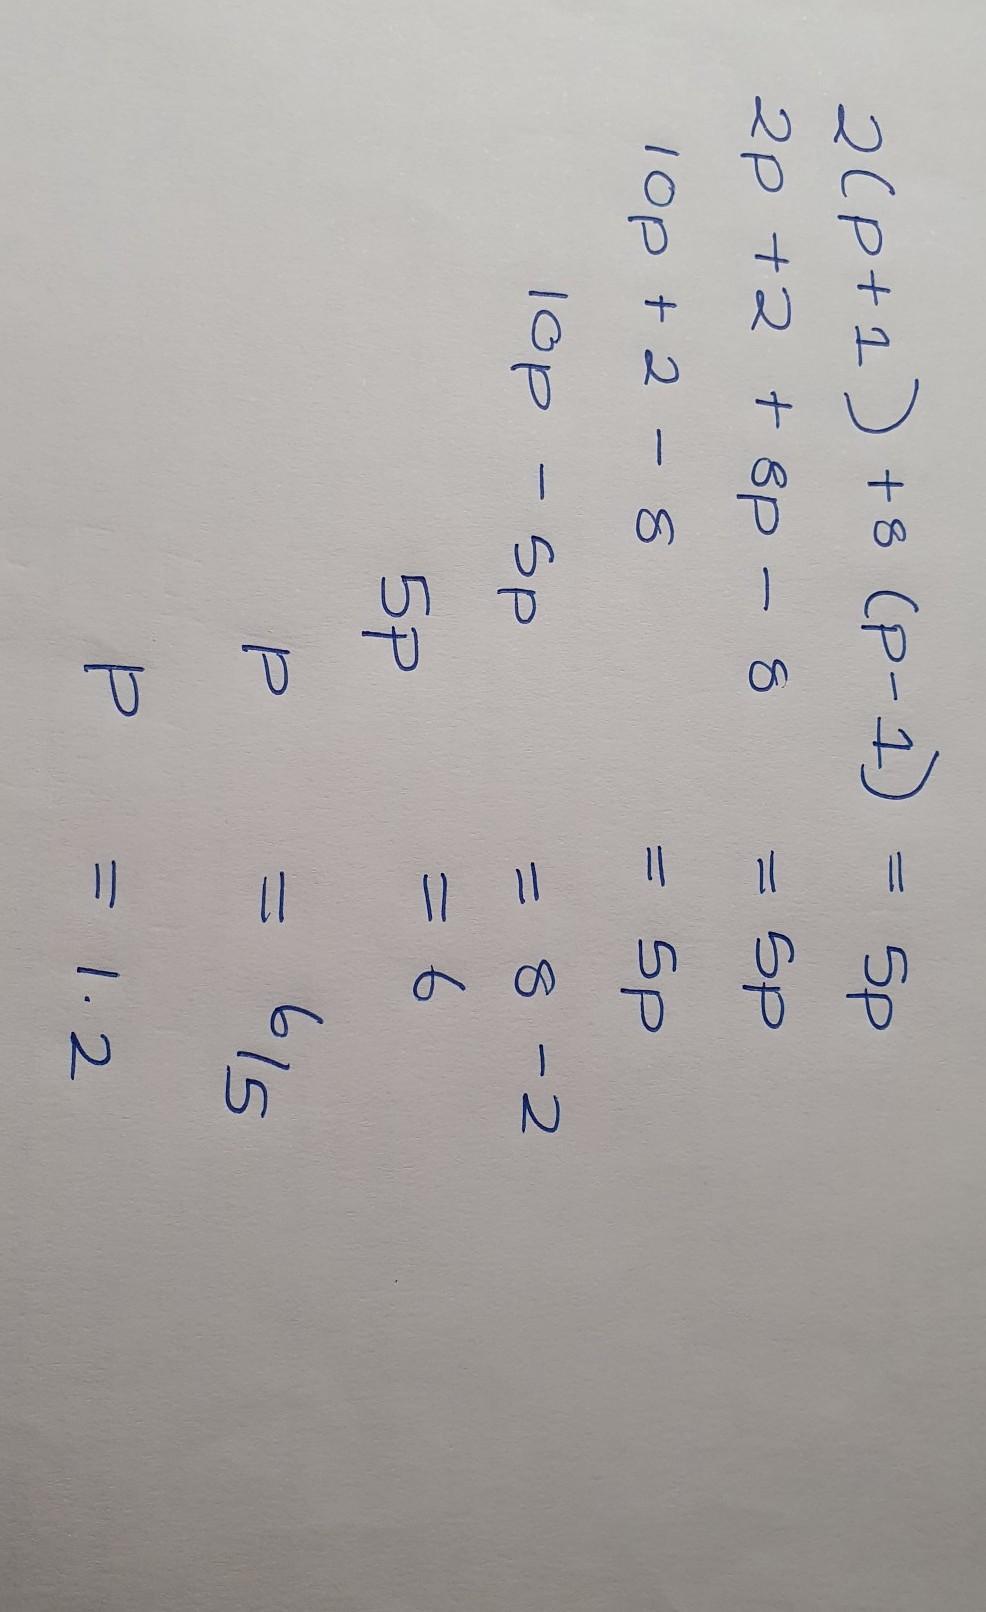 2(p+1)+8(p-1) = 5p
2p+2+8p-8 = 5p
10p+2-8 = 5p
10p-5p = 8-2
5p = 6
p = 6/5
p = 1.2